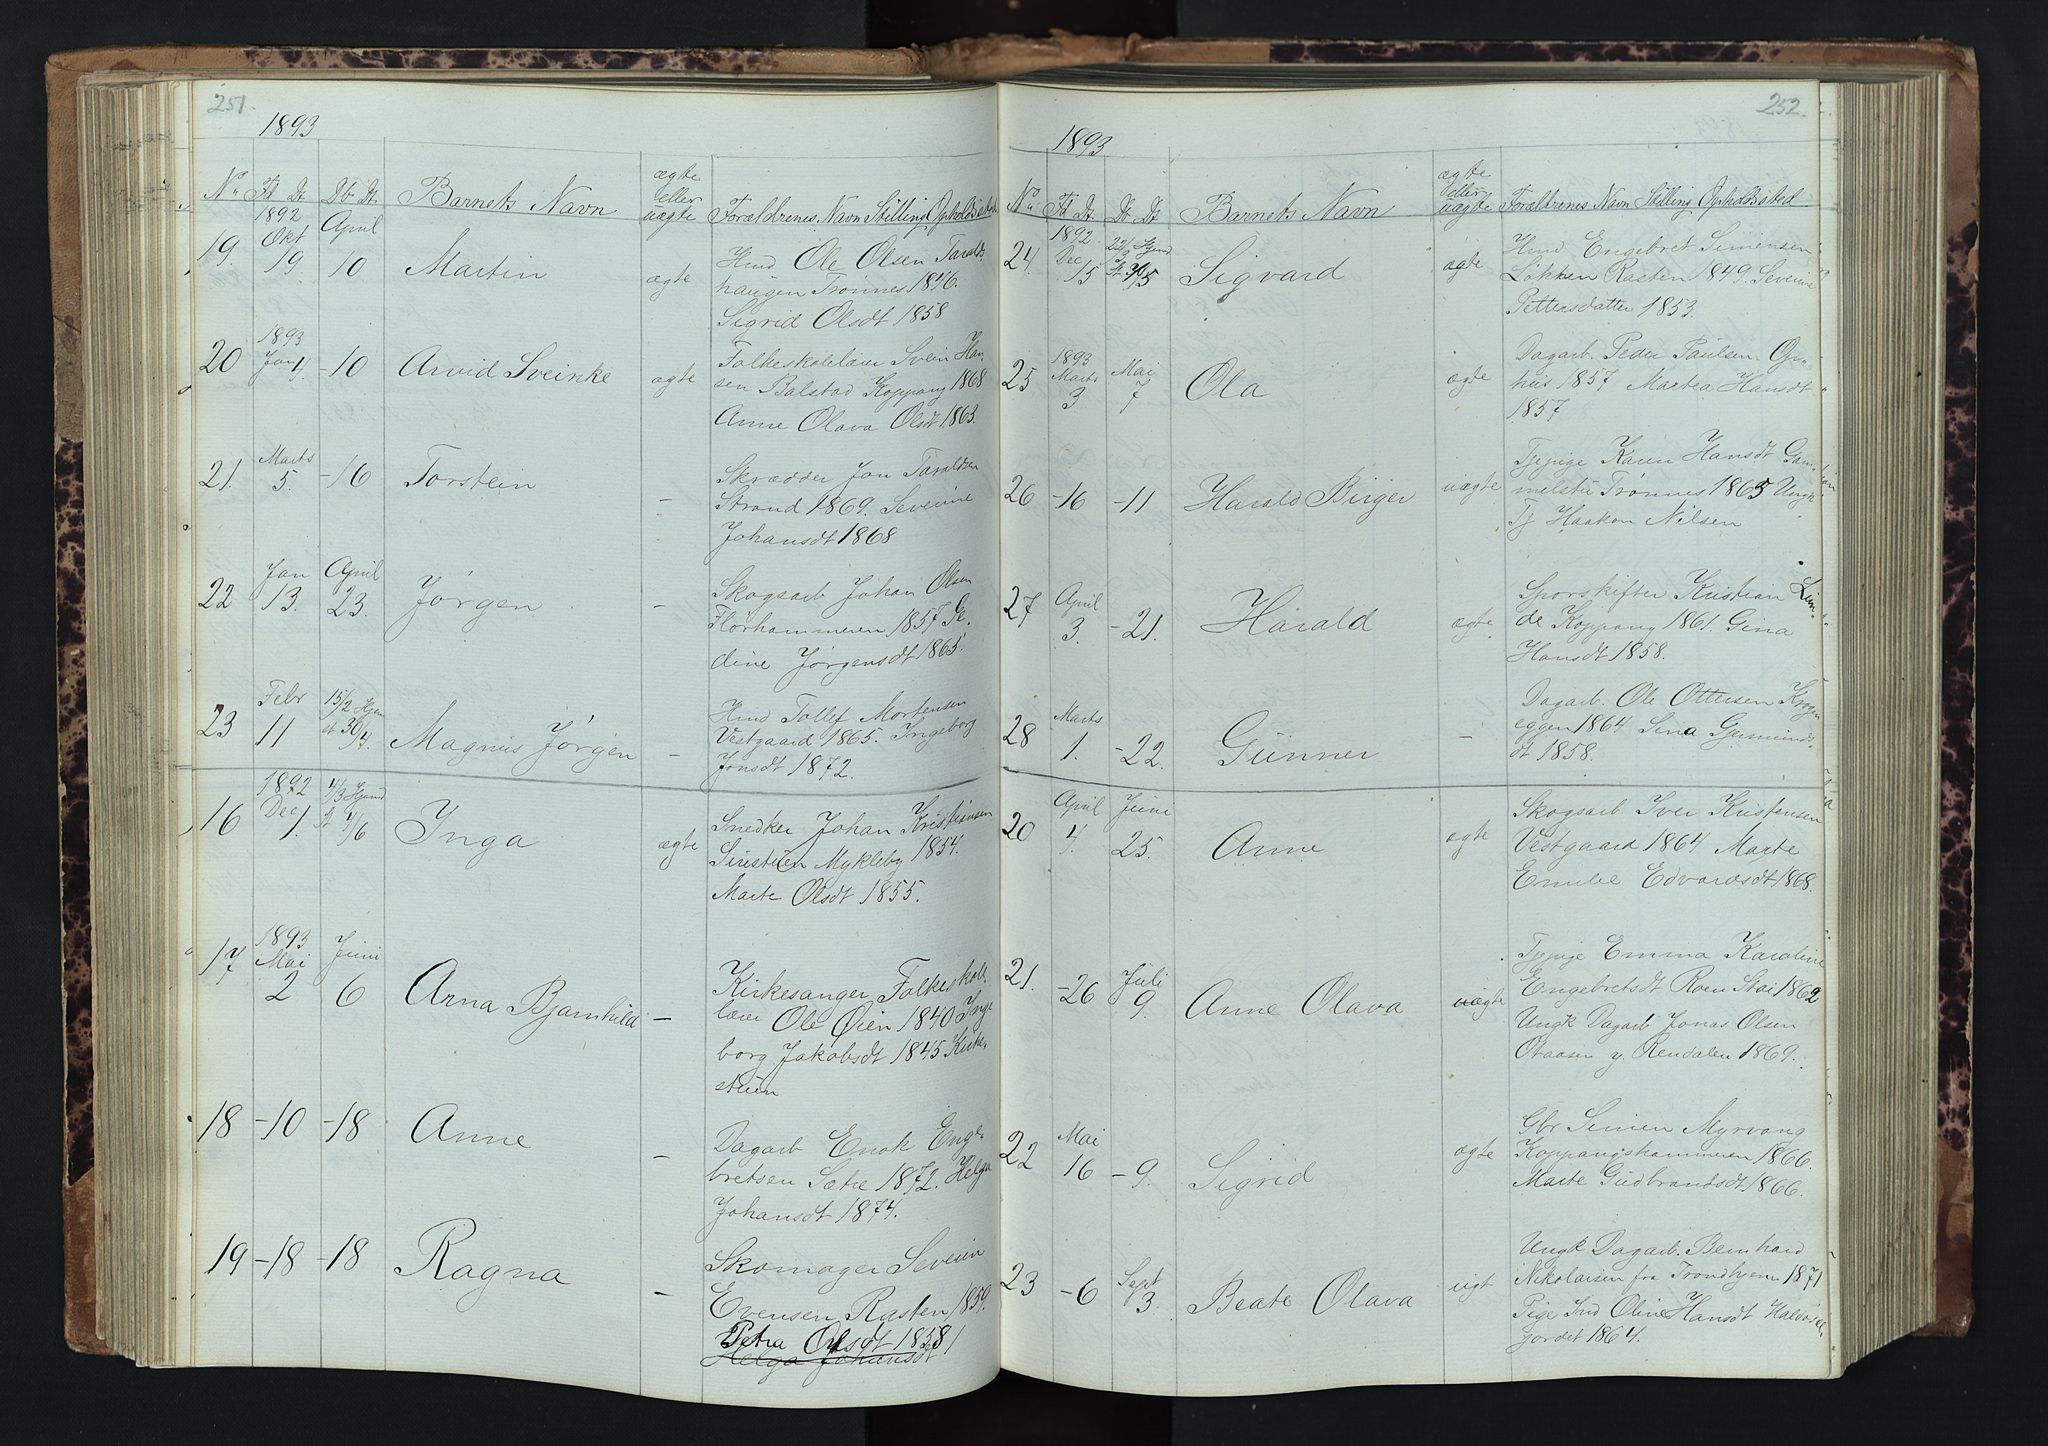 251.
1893
No Fd Dt Db Dt Barnets Navn ægte eller uægte Forældrenes Navn Stilling Opholdssted
19. 1892 Okt 19. April 10 Martin ægte Hmd Ole Olsen Taralds-
haugen Trønnes 1846.
Sigrid Olsdt 1858
20 1893 Jan 4. -10 Arvid Sveinke ægte Folkeskolelærer Svein Han-
sen Balstad Koppang 1868
Anne Olava Olsdt 1863.
21. Marts 5. -16 Torstein - Skrædder Jon Taraldsen
Strand 1869. Severine
Johansdt 1868
22 Jan 13. April 23. Jørgen - Skogsarb Johan Olsen
Florhammeren 1857
dine Jørgensdt 1865
23 Febr 11 15/2 Hjem st 30/4. Magnus Jørgen - Hmd Tollef Mortensen
Vestgaard 1865. Ingeborg
Jonsdt 1872.
16 1892 Dec 1. 4/3 Hjemd st 4/6 Inga ægte Snedker Johan Kristiansen
Mykleby 1854.
Marte Olsdt 1855.
17 1893 Mai 2 Juni 6 Arna Bjarnhild - Kirkesanger Folkeskole
lærer Ole Øien 1840 Inge
borg Jakobsdt 1845 Kirke-
stuen
18 -10 -18 Anne - Dagarb Enok Enge-
bretsen Sætre 1872. Helga
Johansdt 1874.
19 -18 -18 Ragna - Skomager Severin
Evensen Rasten 1859.
Petra Olsdt 1858
Helga Johansdt
252.
1893
No Fd Dt Db Dt Barnets Navn ægte eller uægte Forældrenes Navn Stilling Opholdssted
24. 1892 Dec 15 22/1 Hjemd St 7/5 Sigvard ægte Hmd Engebret Simensen
Løkken Rasten 1849. Severine
Pettersdatter 1853.
25 1893 Marts 3 Mai 7 Ola ægte Dagarb. Peder Paulsen Op-
hus 1857 Martea Hansdt
1857
26 -16 -11 Harald Birger uægte Tjpige Karen Hansdt Gam-
melstu Trønnes 1865 Ungk
Tj Haakon Nilsen
27 April 3. -21. Harald ægte Sporskifter Kristian Lun-
de Koppang 1861. Gina
Hansdt 1858.
28 Marts 1. -22. Gunner - Dagarb. Ole Ottersen Krog
eggen 1864 Sina Gjermunds
dt 1858.
20 April 4. Juni 25. Anne ægte Skogsarb Iver Kristensen
Vestgaard 1864 Marte
Emilie Edvardsdt 1868.
21. -26 Juli 9. Anne Olava uægte Tjpige Emma Karoline
Engebretsdt Roen Stai 1862
Ungk Dagarb Jonas Olsen
y. Rendalen 1869.
22 Mai 16 -9. Sigrid ægte Gbr Simen Myrvang
Koppangshammeren 1866.
Marte Gudbrandsdt 1866.
23 -6 Sept 3. Beate Olava ugt Ungk Dagarb. Bernhard
Nikolaisen fra Trondhjem 1871
Pige Ind Oline Hansdt
jordet 1864.